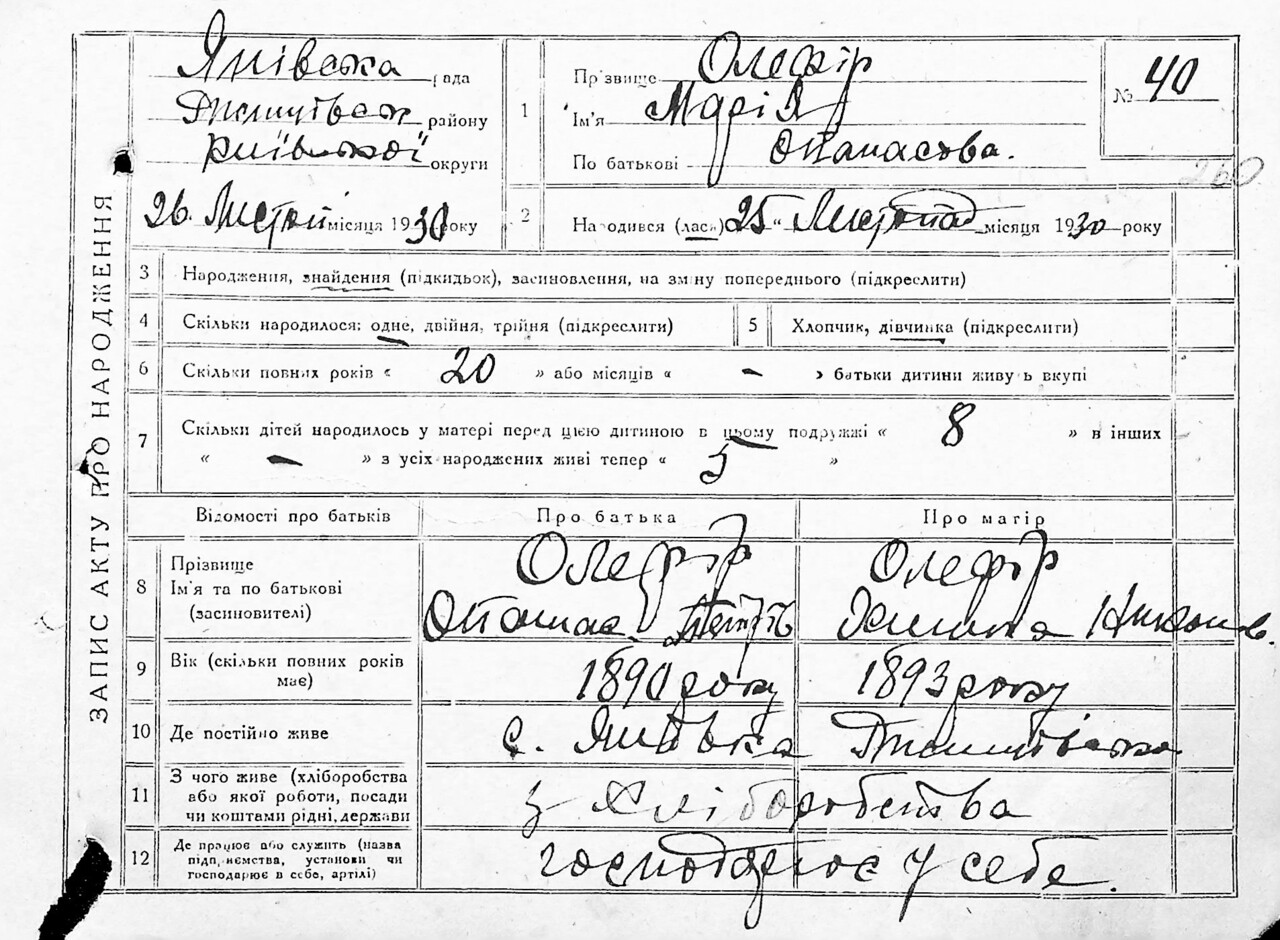 ЗАПИС АКТУ ПРО НАРОДЖЕННЯ
Янівська рада
району
Київської округи
26 Листоп місяця 1930 року
1
Прізвище Олефір
Ім'я Марія
По батькові Опанасова.
№ 40
260
2
Народився (лась) 25 " Листопад місяця 1930 року
3 Народження, знайдення (підкидьок), засиновлення, на зміну попереднього (підкреслити)
4 Скільки народилося: одне, двійня, трійня (підкреслити)
5 Хлопчик, дівчинка (підкреслити)
6 Скільки повних років « 20 » або місяців « - » батьки дитини живуть вкупі
7 Скільки дітей народилось у матері перед цією дитиною в цьому подружжі « 8 » в інших
« - » з усіх народжених живі тепер « 5 »
Відомості про батьків
Про батька
Про матір
8 Прізвище
Ім'я та по батькові
(засиновителі)
Олефір
Опанас Петрів
Олефір
Никонов.
9 Вік (скільки повних років
має)
1890 року
1893 року
10 Де постійно живе
с. Янівка
11 З чого живе (хліборобства
або якої роботи, посади
чи коштами рідні, держави
з хліборобства
12 Де працює або служить (назва
підприємства, установи чи
господарює в себе, артілі)
господарює у себе.